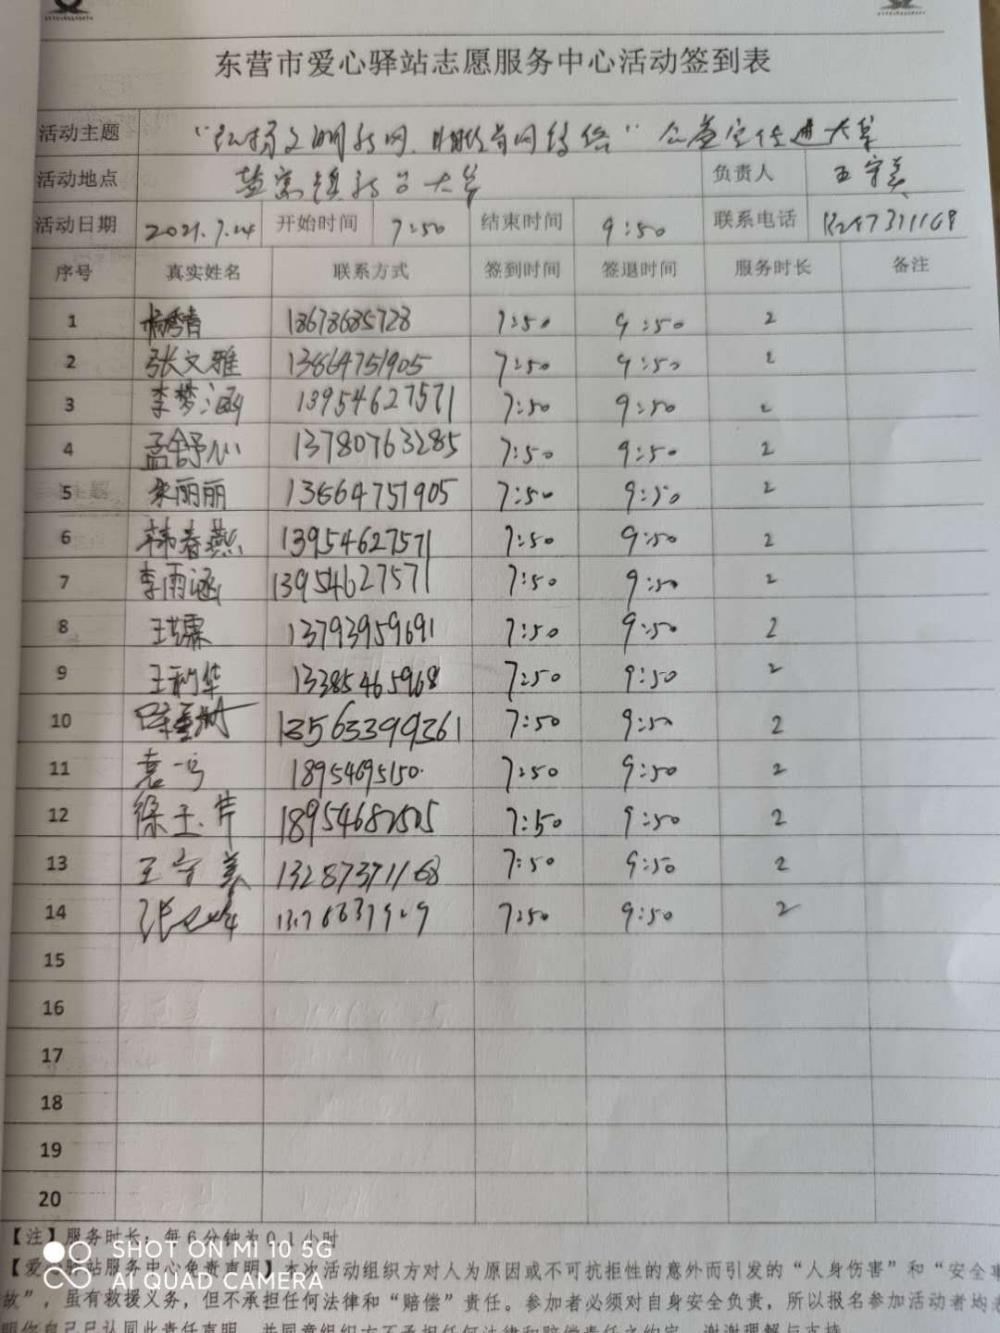 东营市爱心驿站志愿服务中心活动签到表
活动主题 公益宣传进大集
活动地点 盐窝镇 大集 负责人 王守美
活动日期 2021.7.24 开始时间 7:50 结束时间 9:50 联系电话
序号 真实姓名 联系方式 签到时间 签退时间 服务时长 备注
1 杨秀青 18678685728 7:50 9:50 2
2 张文雅 13864751905 7:50 9:50 2
3 李梦涵 13954627571 7:50 9:50 2
4 孟舒心 13780763285 7:50 9:50 2
5 丽丽 13864751905 7:50 9:50 2
6 韩春燕 13954627571 7:50 9:50 2
7 李雨涵 13954627571 7:50 9:50 2
8 13793959691 7:50 9:50 2
9 王利华 13385465968 7:50 9:50 2
10 7:50 9:50 2
11 袁 18954695150 7:50 9:50 2
12 徐玉芹 18954682505 7:50 9:50 2
13 王守美 13287371168 7:50 9:50 2
14 张 7:50 9:50 2
15
16
17
18
19
20
【注】服务时长：每6分钟为0.1小时
SHOT ON MI 10 5G
AI QUAD CAMERA
【爱心驿站服务中心免责声明】本次活动组织方对人为原因或不可抗拒性的意外而引发的“人身伤害”和“安全事
故”，虽有救援义务，但不承担任何法律和“赔偿”责任。参加者必须对自身安全负责，所以报名参加活动者均
明你自己已认同此责任声明，并同意组织方不承担任何法律和赔偿责任之约定，谢谢理解与支持